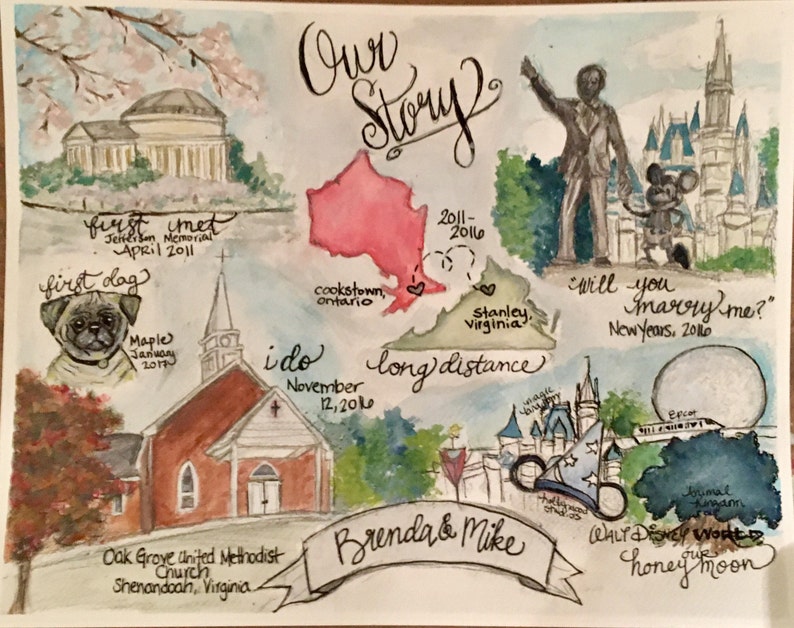 Our
Story
first met
Jefferson Memorial
April 2011
2011-
2016
cookstown,
ontario
Stanley,
Virginia
long distance
"Will you
marry me?"
New Years, 2016
first dog
Maple
January
2017
i do
November
12, 2016
Oak Grove United Methodist
Church
Shenandoah, Virginia
Brenda & Mike
magic
kingdom
Epcot
hollywood
studios
animal
kingdom
WALT DISNEY WORLD
our
honeymoon